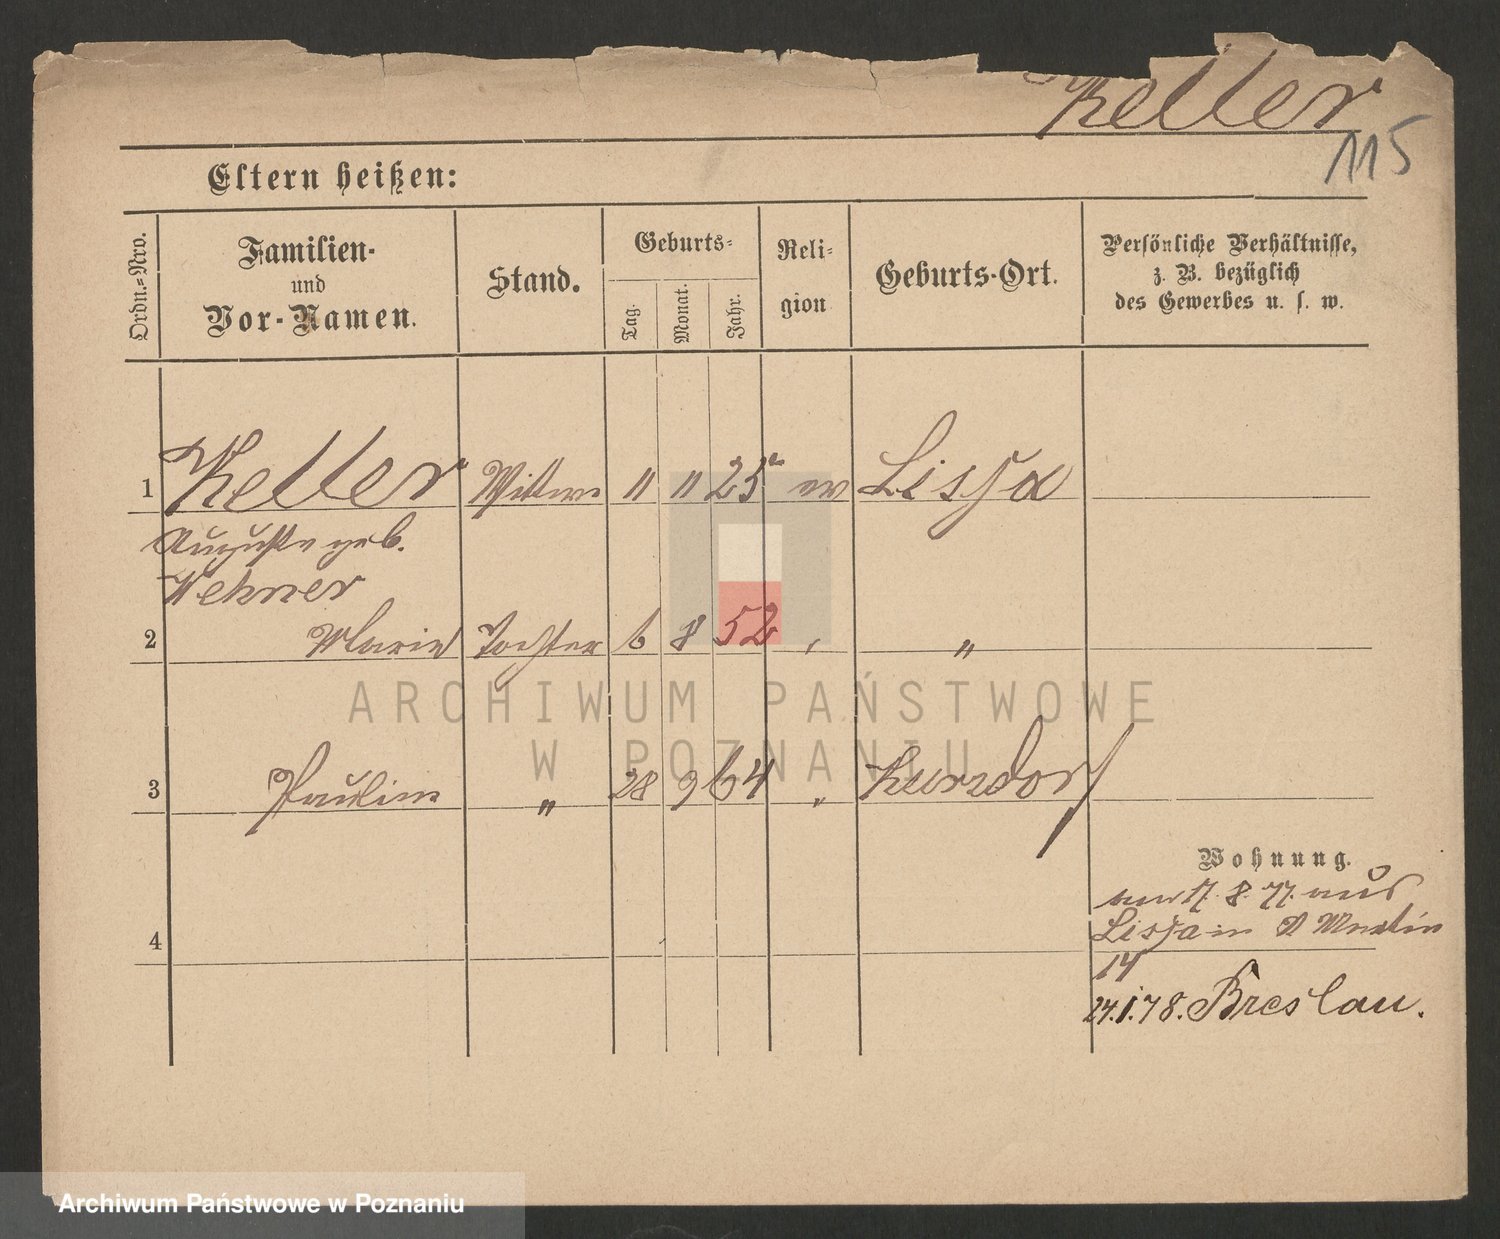 Keller
115
Eltern heißen:
Ordn.-Nro.
Familien-
und
Vor-Namen.
Stand.
Geburts-
Tag.
Monat.
Jahr.
Reli-
gion
Geburts-Ort.
Persönliche Verhältnisse,
z. B. bezüglich
des Gewerbes u. s. w.
1 Keller Wittwe " " 25 ev Lissa
Auguste geb.
2 Marie Tochter 6 8 52 "
3 Pauline " 28 9 64 " Kursdorf
Wohnung.
17. 8. 77. aus
Lissa in St Martin
14
4
24.1.78. Breslau.
ARCHIWUM PAŃSTWOWE
W POZNANIU
Archiwum Państwowe w Poznaniu